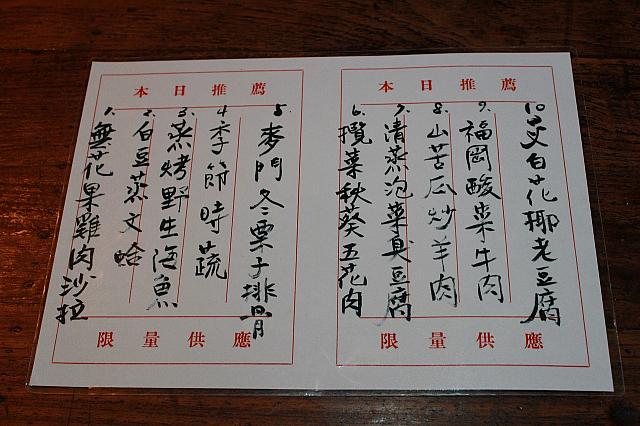 本日推薦
1. 無花果雞肉沙拉
2. 白豆蒸文蛤
3. 蒸烤野生海魚
4. 季節時蔬
5. 麥門冬栗子排骨
限量供應
本日推薦
6. 攬菜秋葵五花肉
7. 清蒸泡菜臭豆腐
8. 山苦瓜炒羊肉
9. 福岡酸菜牛肉
10 白花椰老豆腐
限量供應